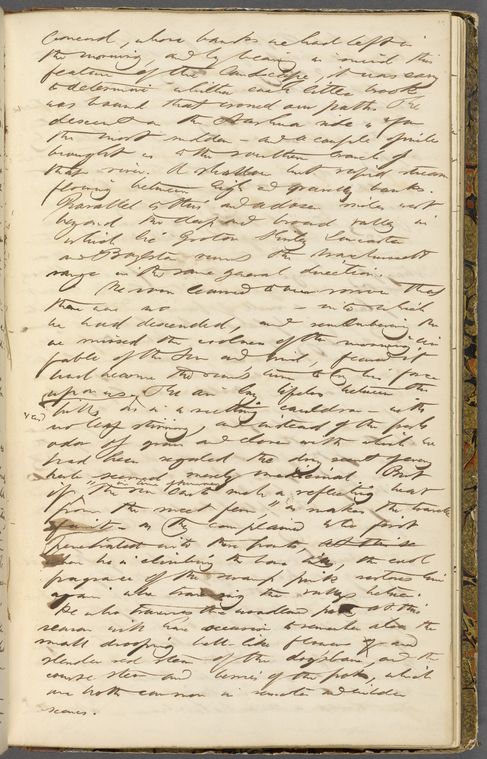 Concord, whose banks we had left in
the morning, and by bearing in mind this
feature of the landscape, it was easy
to determine whither each little brook
was bound that crossed our path. The
descent on the Nashua side is by far
the most sudden – and a couple of miles
brought us to the southern branch of
that river. A shallow but rapid stream
flowing between high and gravelly banks.
Parallel to this and a dozen miles west
beyond the deep and broad valley in
which lie Groton Shirley Lancaster
and Boylston runs the Wachusett
range in the same general direction.
We soon learned to our sorrow that
there was no – into which
we had descended, and remembering
we missed the coolness of the morning air
of the sun and wind, feared it
had become the sun's turn to try his force
upon us, The air lay lifeless between the
hills, as in a seething cauldron – with
no leaf stirring, and instead of the fresh
odor of grass and clover with which we
had been regaled the dry scent of every
herb seemed merely medicinal. But
if "the sun casts such a reflecting heat
from the sweet fern" as makes the traveller
faint – as they complained who first
penetrated into these parts,
when he is climbing the bare, the cool
fragrance of the swamp pink restores him
again when traversing the valleys between.
He who traverses the woodland paths at this
season will have occasion to remember also the
small drooping bell-like flowers and
slender red stem of the dogsbane, and the
coarse stem and berries of the poke, which
are both common in remote and wilder
scenes.